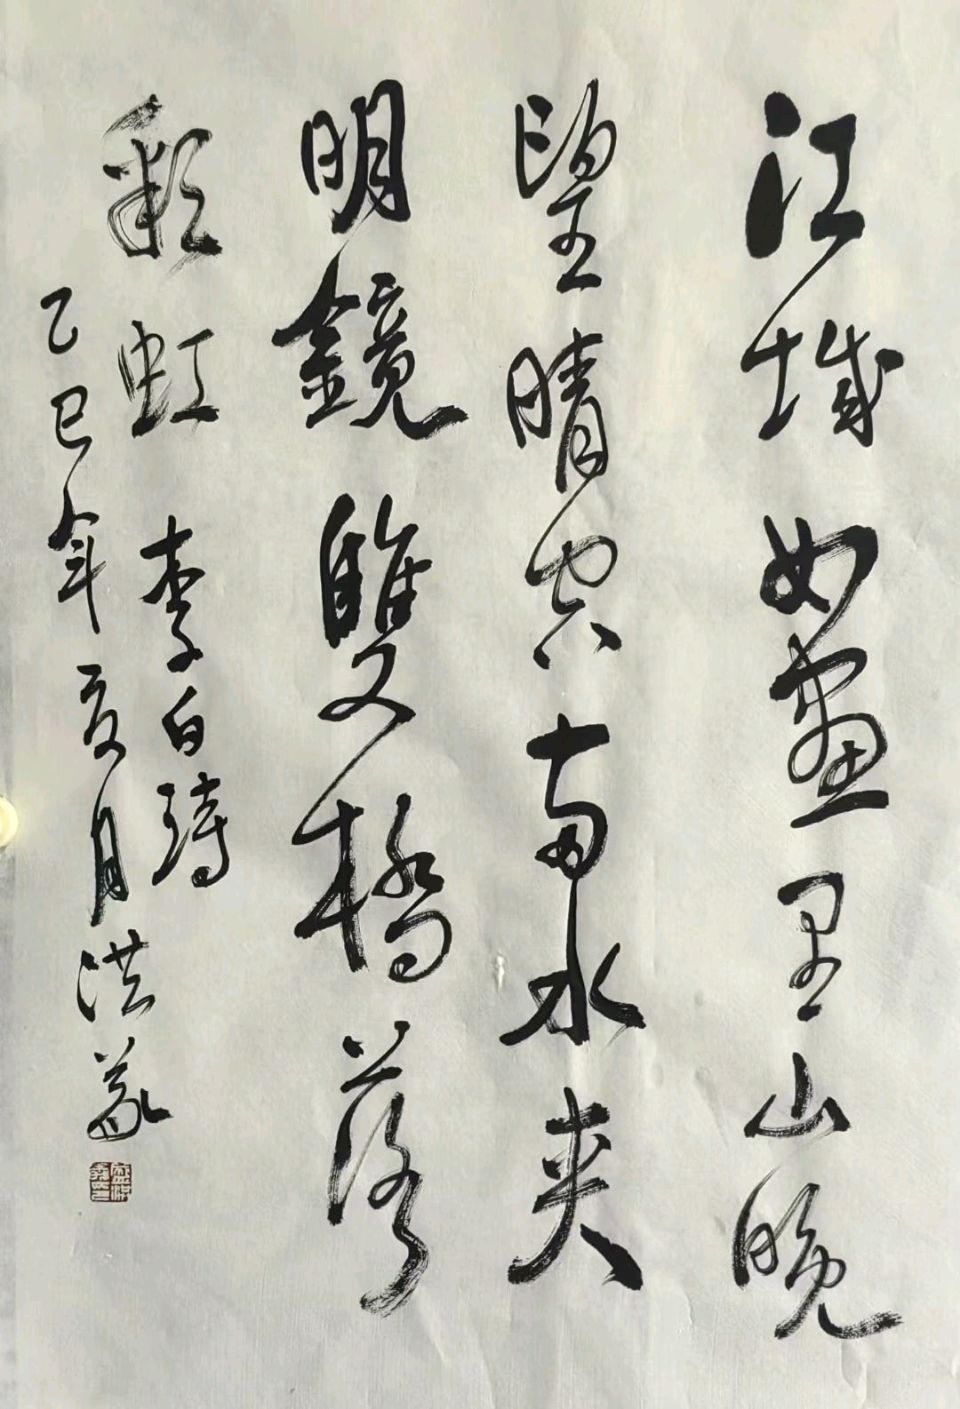 江城如畫里山晚
望晴空兩水夾
明鏡雙橋落
彩虹 李白詩
乙巳年夏月洪義